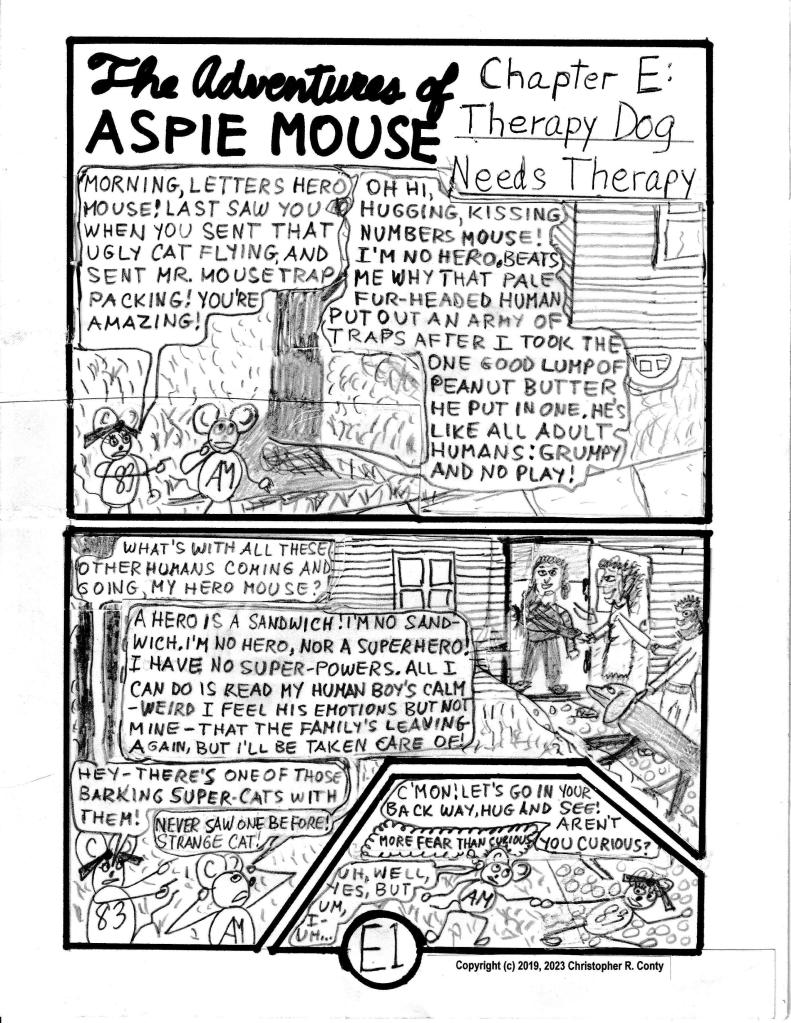 The Adventures of
ASPIE MOUSE
Chapter E:
Therapy Dog
Needs Therapy
MORNING, LETTERS HERO
MOUSE! LAST SAW YOU
WHEN YOU SENT THAT
UGLY CAT FLYING, AND
SENT MR. MOUSETRAP
PACKING! YOU'RE
AMAZING!
OH HI,
HUGGING, KISSING
NUMBERS MOUSE!
I'M NO HERO. BEATS
ME WHY THAT PALE
FUR-HEADED HUMAN
PUT OUT AN ARMY OF
TRAPS AFTER I TOOK THE
ONE GOOD LUMP OF
PEANUT BUTTER
HE PUT IN ONE. HE'S
LIKE ALL ADULT
HUMANS: GRUMPY
AND NO PLAY!
83
AM
WHAT'S WITH ALL THESE
OTHER HUMANS COMING AND
GOING, MY HERO MOUSE?
A HERO IS A SANDWICH! I'M NO SAND-
WICH. I'M NO HERO, NOR A SUPERHERO!
I HAVE NO SUPER-POWERS. ALL I
CAN DO IS READ MY HUMAN BOY'S CALM
-WEIRD I FEEL HIS EMOTIONS BUT NOT
MINE - THAT THE FAMILY'S LEAVING
AGAIN, BUT I'LL BE TAKEN CARE OF!
HEY - THERE'S ONE OF THOSE
BARKING SUPER-CATS WITH
THEM!
NEVER SAW ONE BEFORE!
STRANGE CAT!
83
AM
C'MON! LET'S GO IN YOUR
BACK WAY, HUG AND SEE!
AREN'T
YOU CURIOUS?
MORE FEAR THAN CURIOUS
UH, WELL,
YES, BUT
UM,
I-
UH...
AM
83
E1
Copyright (c) 2019, 2023 Christopher R. Conty